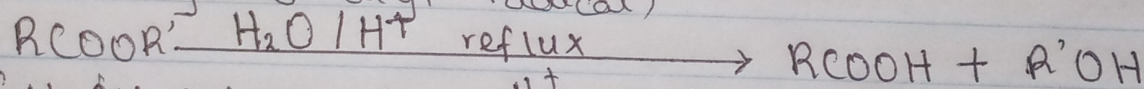 RCOOR' H₂O / H⁺ reflux → RCOOH + R'OH